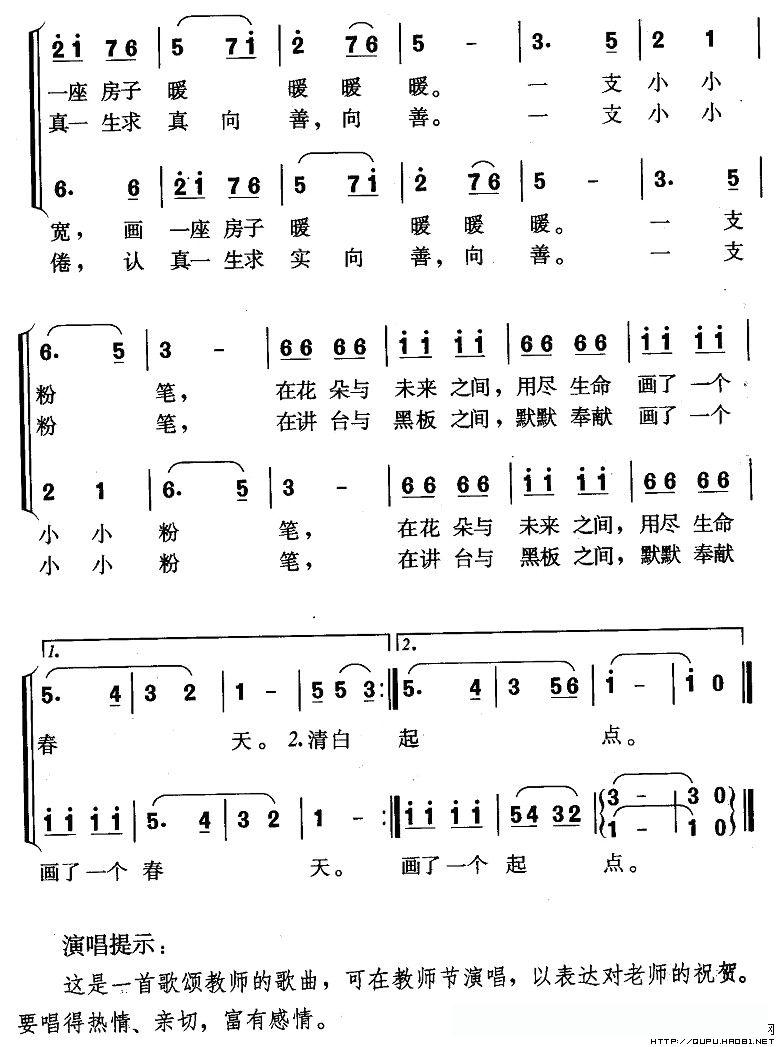 2̇1̇ 76 | 5 71̇ | 2̇ 76 | 5 - | 3. 5 | 2 1 |
一座 房子 暖 暖 暖 暖。 一 支 小 小
真一 生求 真 向 善，向 善。 一 支 小 小
6. 6 | 2̇1̇ 76 | 5 71̇ | 2̇ 76 | 5 - | 3. 5 |
宽， 画 一座 房子 暖 暖 暖 暖。 一 支
倦， 认 真一 生求 实 向 善，向 善。 一 支
6. 5 | 3 - | 66 66 | 1̇1̇ 1̇1̇ | 66 66 | 1̇1̇ 1̇1̇ |
粉 笔， 在花 朵与 未来 之间，用尽 生命 画了 一个
粉 笔， 在讲 台与 黑板 之间，默默 奉献 画了 一个
2 1 | 6. 5 | 3 - | 66 66 | 1̇1̇ 1̇1̇ | 66 66 |
小 小 粉 笔， 在花 朵与 未来 之间，用尽 生命
小 小 粉 笔， 在讲 台与 黑板 之间，默默 奉献
1. 2.
5. 4 | 3 2 | 1 - | 5 5 3 :‖ 5. 4 | 3 56 | 1̇ - | 1̇ 0 ‖
春 天。 2.清白 起 点。
1̇1̇ 1̇1̇ | 5. 4 | 3 2 | 1 - :‖ 1̇1̇ 1̇1̇ | 54 32 | 3̇ - | 3̇ 0 ‖
1̇ - | 1̇ 0
画了 一个 春 天。 画了 一个 起 点。
演唱提示：
这是一首歌颂教师的歌曲，可在教师节演唱，以表达对老师的祝贺。
要唱得热情、亲切，富有感情。
HTTP://QUPU.HAO81.NET